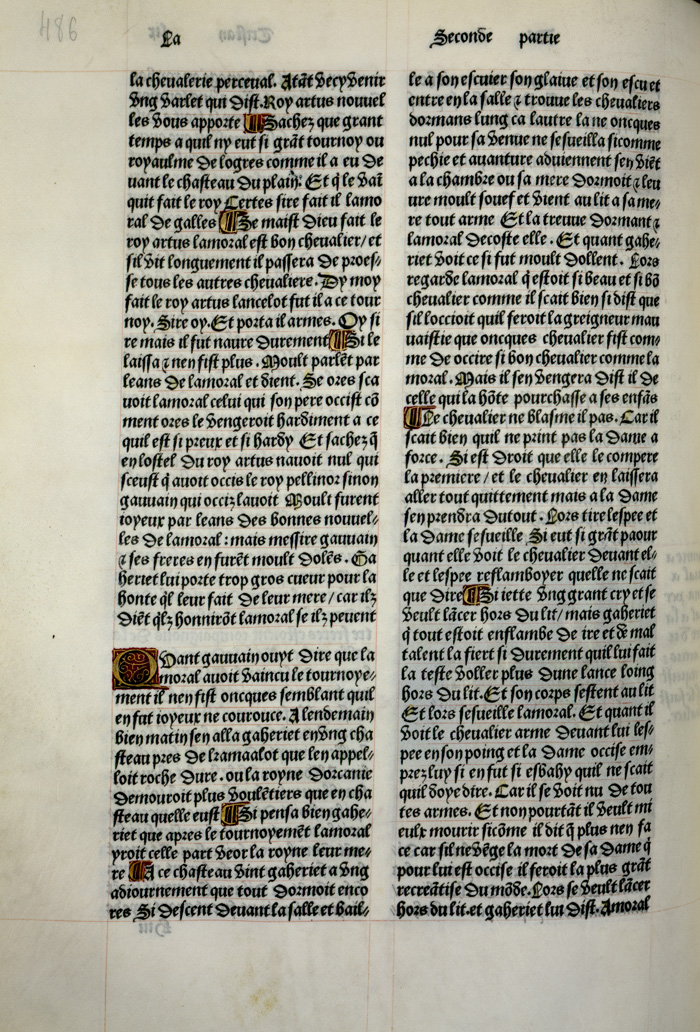 486
La
Seconde partie
la cheualerie perceual. Atãt Vecy Venir
Vng Varlet qui dist. Roy artus nouuel
les Vous apporte ¶ Sachez que grant
temps a quil ny eut si grãt tournoy ou
royaulme de logres comme il a eu de
uant le chasteau du plain: Et q̃ le Vai
quit fait le roy Certes sire fait il lamo
ral de galles ¶ Se maist dieu fait le
roy artus lamoral est bon cheualier/ et
sil Vit longuement il passera de proes⸗
se tous les autres cheualiere. Dy moy
fait le roy artus lancelot fut il a ce tour
noy. Sire oy. Et porta il armes. Oy si
re mais il fut naure durement ¶ Si le
laissa ⁊ nen fist plus. Moult parlẽt par
leans de lamoral et dient. Se ores sca
uoit lamoral celui qui son pere occist cõ
ment ores le Vengeroit hardiment a ce
quil est si preux et si hardy Et sachez q̃
en lostel du roy artus nauoit nul qui
sceust q̃ auoit occis le roy pellinor sinon
gauuain qui occiz lauoit Moult furent
ioyeux par leans des bonnes nouuel⸗
les de lamoral: mais messire gauuain
⁊ ses freres en furẽt moult dolẽs. Ga
heriet lui porte trop gros cueur pour la
honte q̃l leur fait de leur mere/ car ilz
diẽt q̃lz honnirõt lamoral se ilz peuent
Quant gauuain ouyt dire que la
moral auoit Vaincu le tournoye⸗
ment il nen fist oncques semblant quil
en fut ioyeur ne courouce. A lendemain
bien matin sen alla gaheriet en Vng cha
steau pres de kramaalot que len appel⸗
loit roche dure. ou la royne dorcanie
demouroit plus Voulẽtiers que en cha
steau quelle eust ¶ Si pensa bien gahe⸗
riet que apres le tournoyemẽt lamoral
yroit celle part Veor la royne leur me⸗
re ¶ A ce chasteau Vint gaheriet a Vng
adiournement que tout dormoit enco
res Si descent deuant la salle et bail⸗
le a son escuier son glaiue et son escu et
entre en la salle ⁊ trouue les cheualiers
dormans lung ca lautre la ne oncques
nul pour sa Venue ne sesueilla si comme
pechie et auanture aduiennent sen Viẽt
a la chambre ou sa mere dormoit ⁊ leu
ure moult souef et Vient au lit a sa me⸗
re tout arme Et la treuue dormant ⁊
lamoral decoste elle. Et quant gahe⸗
riet Voit ce si fut moult dollent. Lors
regarde lamoral q̃ estoit si beau et si bõ
cheualier comme il scait bien si dist que
sil loccioit quil feroit la greigneur mau
uaistie que oncques cheualier fist com⸗
me de occire si bon cheualier comme la
moral. Mais il sen Vengera dist il de
celle qui la hõte pourchasse a ses enfãs
¶ Le cheualier ne blasme il pas. Car il
scait bien quil ne print pas la dame a
force. Si est droit que elle le compere
la premiere/ et le cheualier en laissera
aller tout quittement mais a la dame
sen prendra du tout. Lors tire lespee et
la dame sesueille Si eut si grãt paour
quant elle Voit le cheualier deuant el⸗
le et lespee reflamboyer quelle ne scait
que dire ¶ Si iette Vng grant cry et se
Veult lãcer hors du lit/ mais gaheriet
q̃ tout estoit enflambe de ire et de mal
talent la fiert si durement quil lui fait
la teste Voller plus dune lance loing
hors du lit. Et son corps sestent au lit
Et lors sesueille lamoral. Et quant il
Voit le cheualier arme deuant lui les⸗
pee en son poing et la dame occise em⸗
prez luy si en fut si esbahy quil ne scait
quil doye dire. Car il se Voit nu de tou
tes armes. Et non pourtãt il Veult mi
eulx mourir sicõme il dit q̃ plus nen fa
ce car sil ne Vẽge la mort de sa dame q̃
pour lui est occise il feroit la plus grãt
recreãtise du mõde. Lors se Veult lãcer
hors du lit. et gaheriet lui dist. Amoral